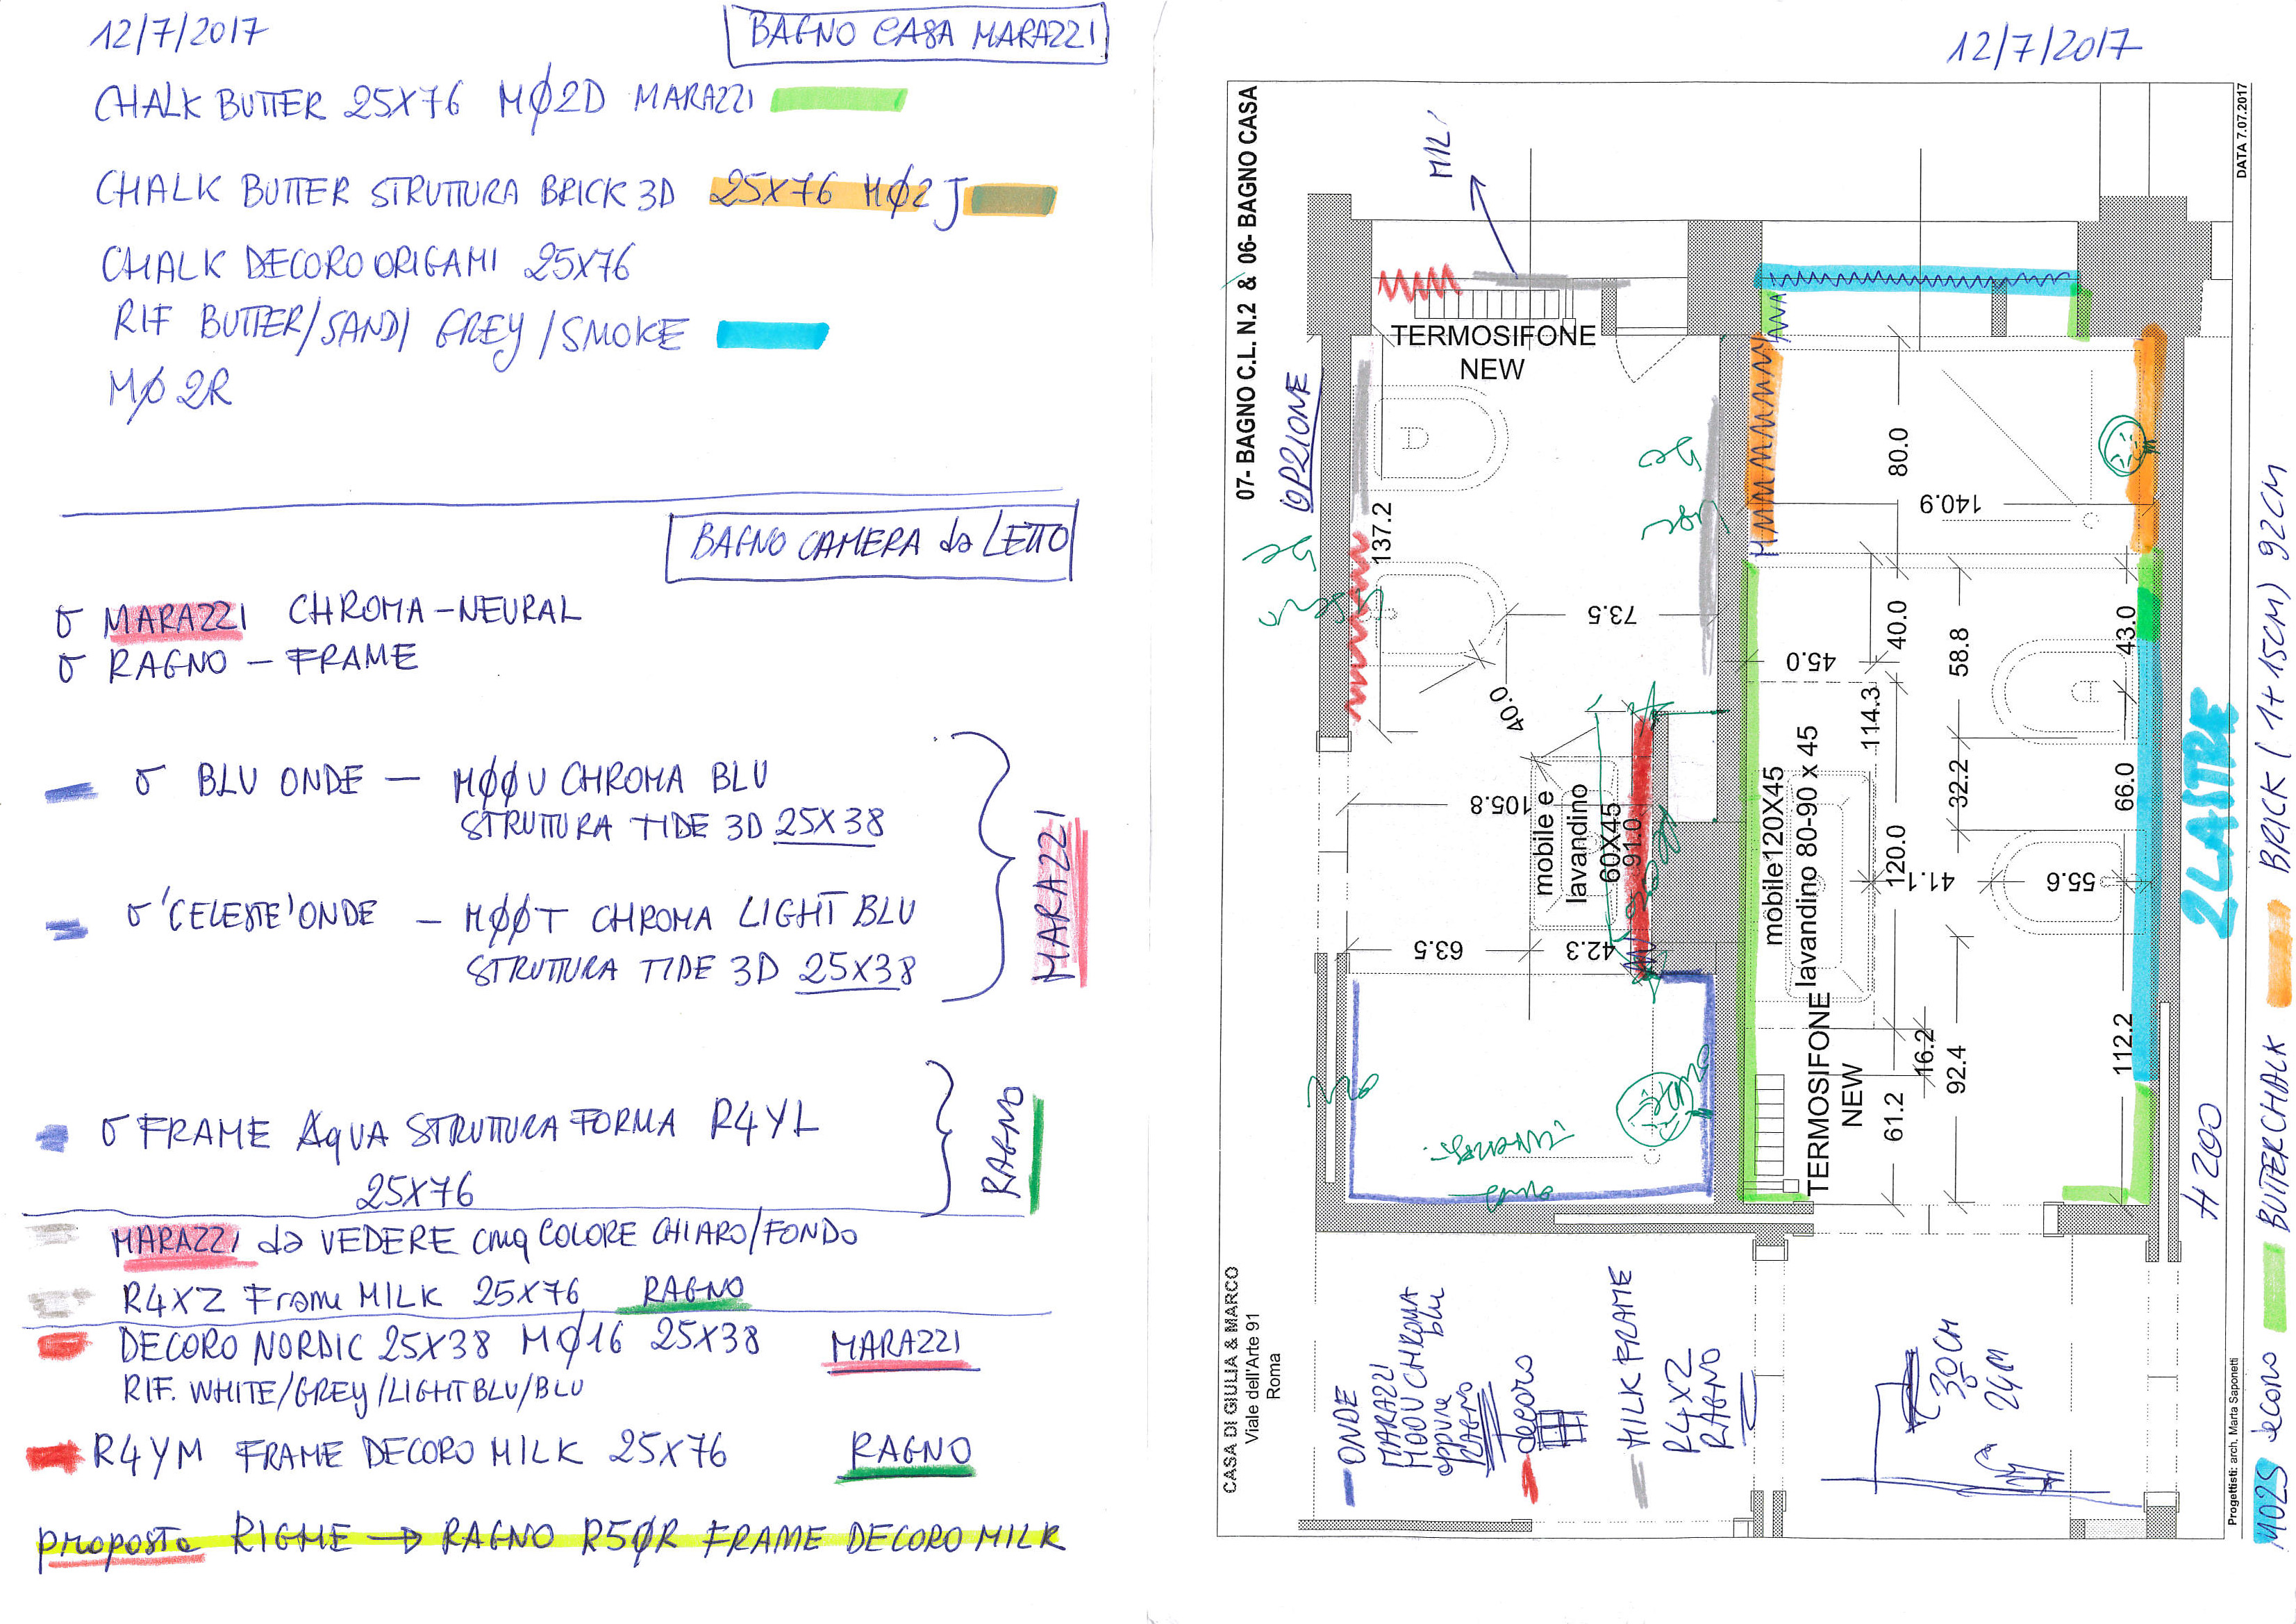 12/7/2017
BAGNO CASA MARAZZI
CHALK BUTTER 25X76 MØ2D MARAZZI
CHALK BUTTER STRUTTURA BRICK 3D 25X76 MØ2J
CHALK DECORO ORIGAMI 25X76
RIF BUTTER/SAND/ GREY/SMOKE
MØ2R
BAGNO CAMERA da LETTO
σ MARAZZI CHROMA-NEURAL
σ RAGNO - FRAME
σ BLU ONDE - MØØU CHROMA BLU
STRUTTURA TIDE 3D 25X38
σ 'CELESTE' ONDE - MØØT CHROMA LIGHT BLU
STRUTTURA TIDE 3D 25X38
MARAZZI
σ FRAME AQUA STRUTTURA FORMA R4YL
25X76
RAGNO
MARAZZI da VEDERE cmq COLORE CHIARO/FONDO
R4XZ Frame MILK 25X76 RAGNO
DECORO NORDIC 25X38 MØ16 25X38 MARAZZI
RIF. WHITE/GREY/LIGHT BLU/BLU
R4YM FRAME DECORO MILK 25X76 RAGNO
proposta RIGHE → RAGNO R5ØR FRAME DECORO MILK
12/7/2017
07- BAGNO C.L. N.2 & 06- BAGNO CASA
DATA 7.07.2017
OPZIONE
TERMOSIFONE
NEW
137.2
73.5
40.0
105.8
mobile e
lavandino
60X45
91.0
63.5
42.3
80.0
140.9
40.0
58.8
43.0
45.0
114.3
mobile 120X45
lavandino 80-90 x 45
32.2
66.0
120.0
41.1
55.6
TERMOSIFONE
NEW
61.2
16.2
92.4
112.2
2 LASTRE
H 200
CASA DI GIULIA & MARCO
Viale dell'Arte 91
Roma
ONDE
MARAZZI
MOOU CHROMA
blu
oppure
RAGNO
decoro
MILK FRAME
R4XZ
RAGNO
30CM
Progettisti: arch. Marta Saponetti
MO2S decoro
BUTTERCHALK
BRICK (1+15CM) 92CM